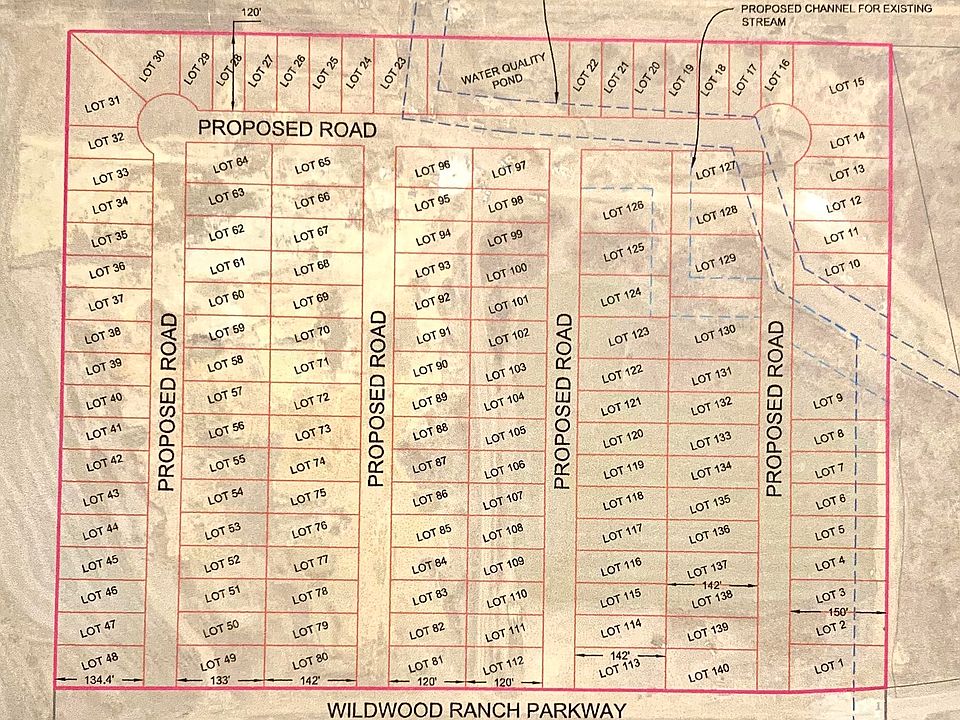 120'
PROPOSED CHANNEL FOR EXISTING
STREAM
LOT 30
LOT 29
LOT 28
LOT 27
LOT 26
LOT 25
LOT 24
LOT 23
WATER QUALITY
POND
LOT 22
LOT 21
LOT 20
LOT 19
LOT 18
LOT 17
LOT 16
LOT 15
LOT 31
LOT 32
LOT 33
LOT 34
LOT 35
LOT 36
LOT 37
LOT 38
LOT 39
LOT 40
LOT 41
LOT 42
LOT 43
LOT 44
LOT 45
LOT 46
LOT 47
LOT 48
134.4'
PROPOSED ROAD
PROPOSED ROAD
LOT 64
LOT 63
LOT 62
LOT 61
LOT 60
LOT 59
LOT 58
LOT 57
LOT 56
LOT 55
LOT 54
LOT 53
LOT 52
LOT 51
LOT 50
LOT 49
133'
LOT 65
LOT 66
LOT 67
LOT 68
LOT 69
LOT 70
LOT 71
LOT 72
LOT 73
LOT 74
LOT 75
LOT 76
LOT 77
LOT 78
LOT 79
LOT 80
142'
PROPOSED ROAD
LOT 96
LOT 95
LOT 94
LOT 93
LOT 92
LOT 91
LOT 90
LOT 89
LOT 88
LOT 87
LOT 86
LOT 85
LOT 84
LOT 83
LOT 82
LOT 81
120'
LOT 97
LOT 98
LOT 99
LOT 100
LOT 101
LOT 102
LOT 103
LOT 104
LOT 105
LOT 106
LOT 107
LOT 108
LOT 109
LOT 110
LOT 111
LOT 112
120'
PROPOSED ROAD
LOT 126
LOT 125
LOT 124
LOT 123
LOT 122
LOT 121
LOT 120
LOT 119
LOT 118
LOT 117
LOT 116
LOT 115
LOT 114
142'
LOT 113
LOT 127
LOT 128
LOT 129
LOT 130
LOT 131
LOT 132
LOT 133
LOT 134
LOT 135
LOT 136
LOT 137
142'
LOT 138
LOT 139
LOT 140
PROPOSED ROAD
LOT 14
LOT 13
LOT 12
LOT 11
LOT 10
LOT 9
LOT 8
LOT 7
LOT 6
LOT 5
LOT 4
LOT 3
150'
LOT 2
LOT 1
WILDWOOD RANCH PARKWAY